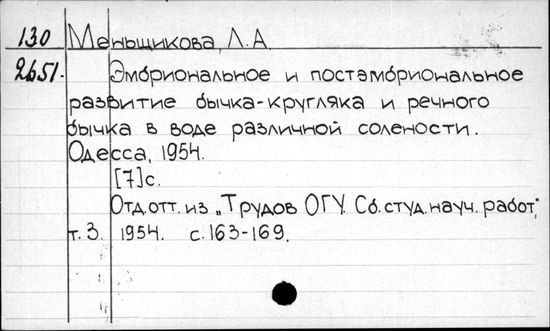 130 Меньщикова, Л.А.
2651. Эмбриональное и постэмбриональное
развитие бычка-кругляка и речного
бычка в воде различной солености.
Одесса, 1954.
[7]с.
Отд.отт. из „Трудов ОГУ. Сб.студ.науч.работ",
т.3. 1954. с.163-169.